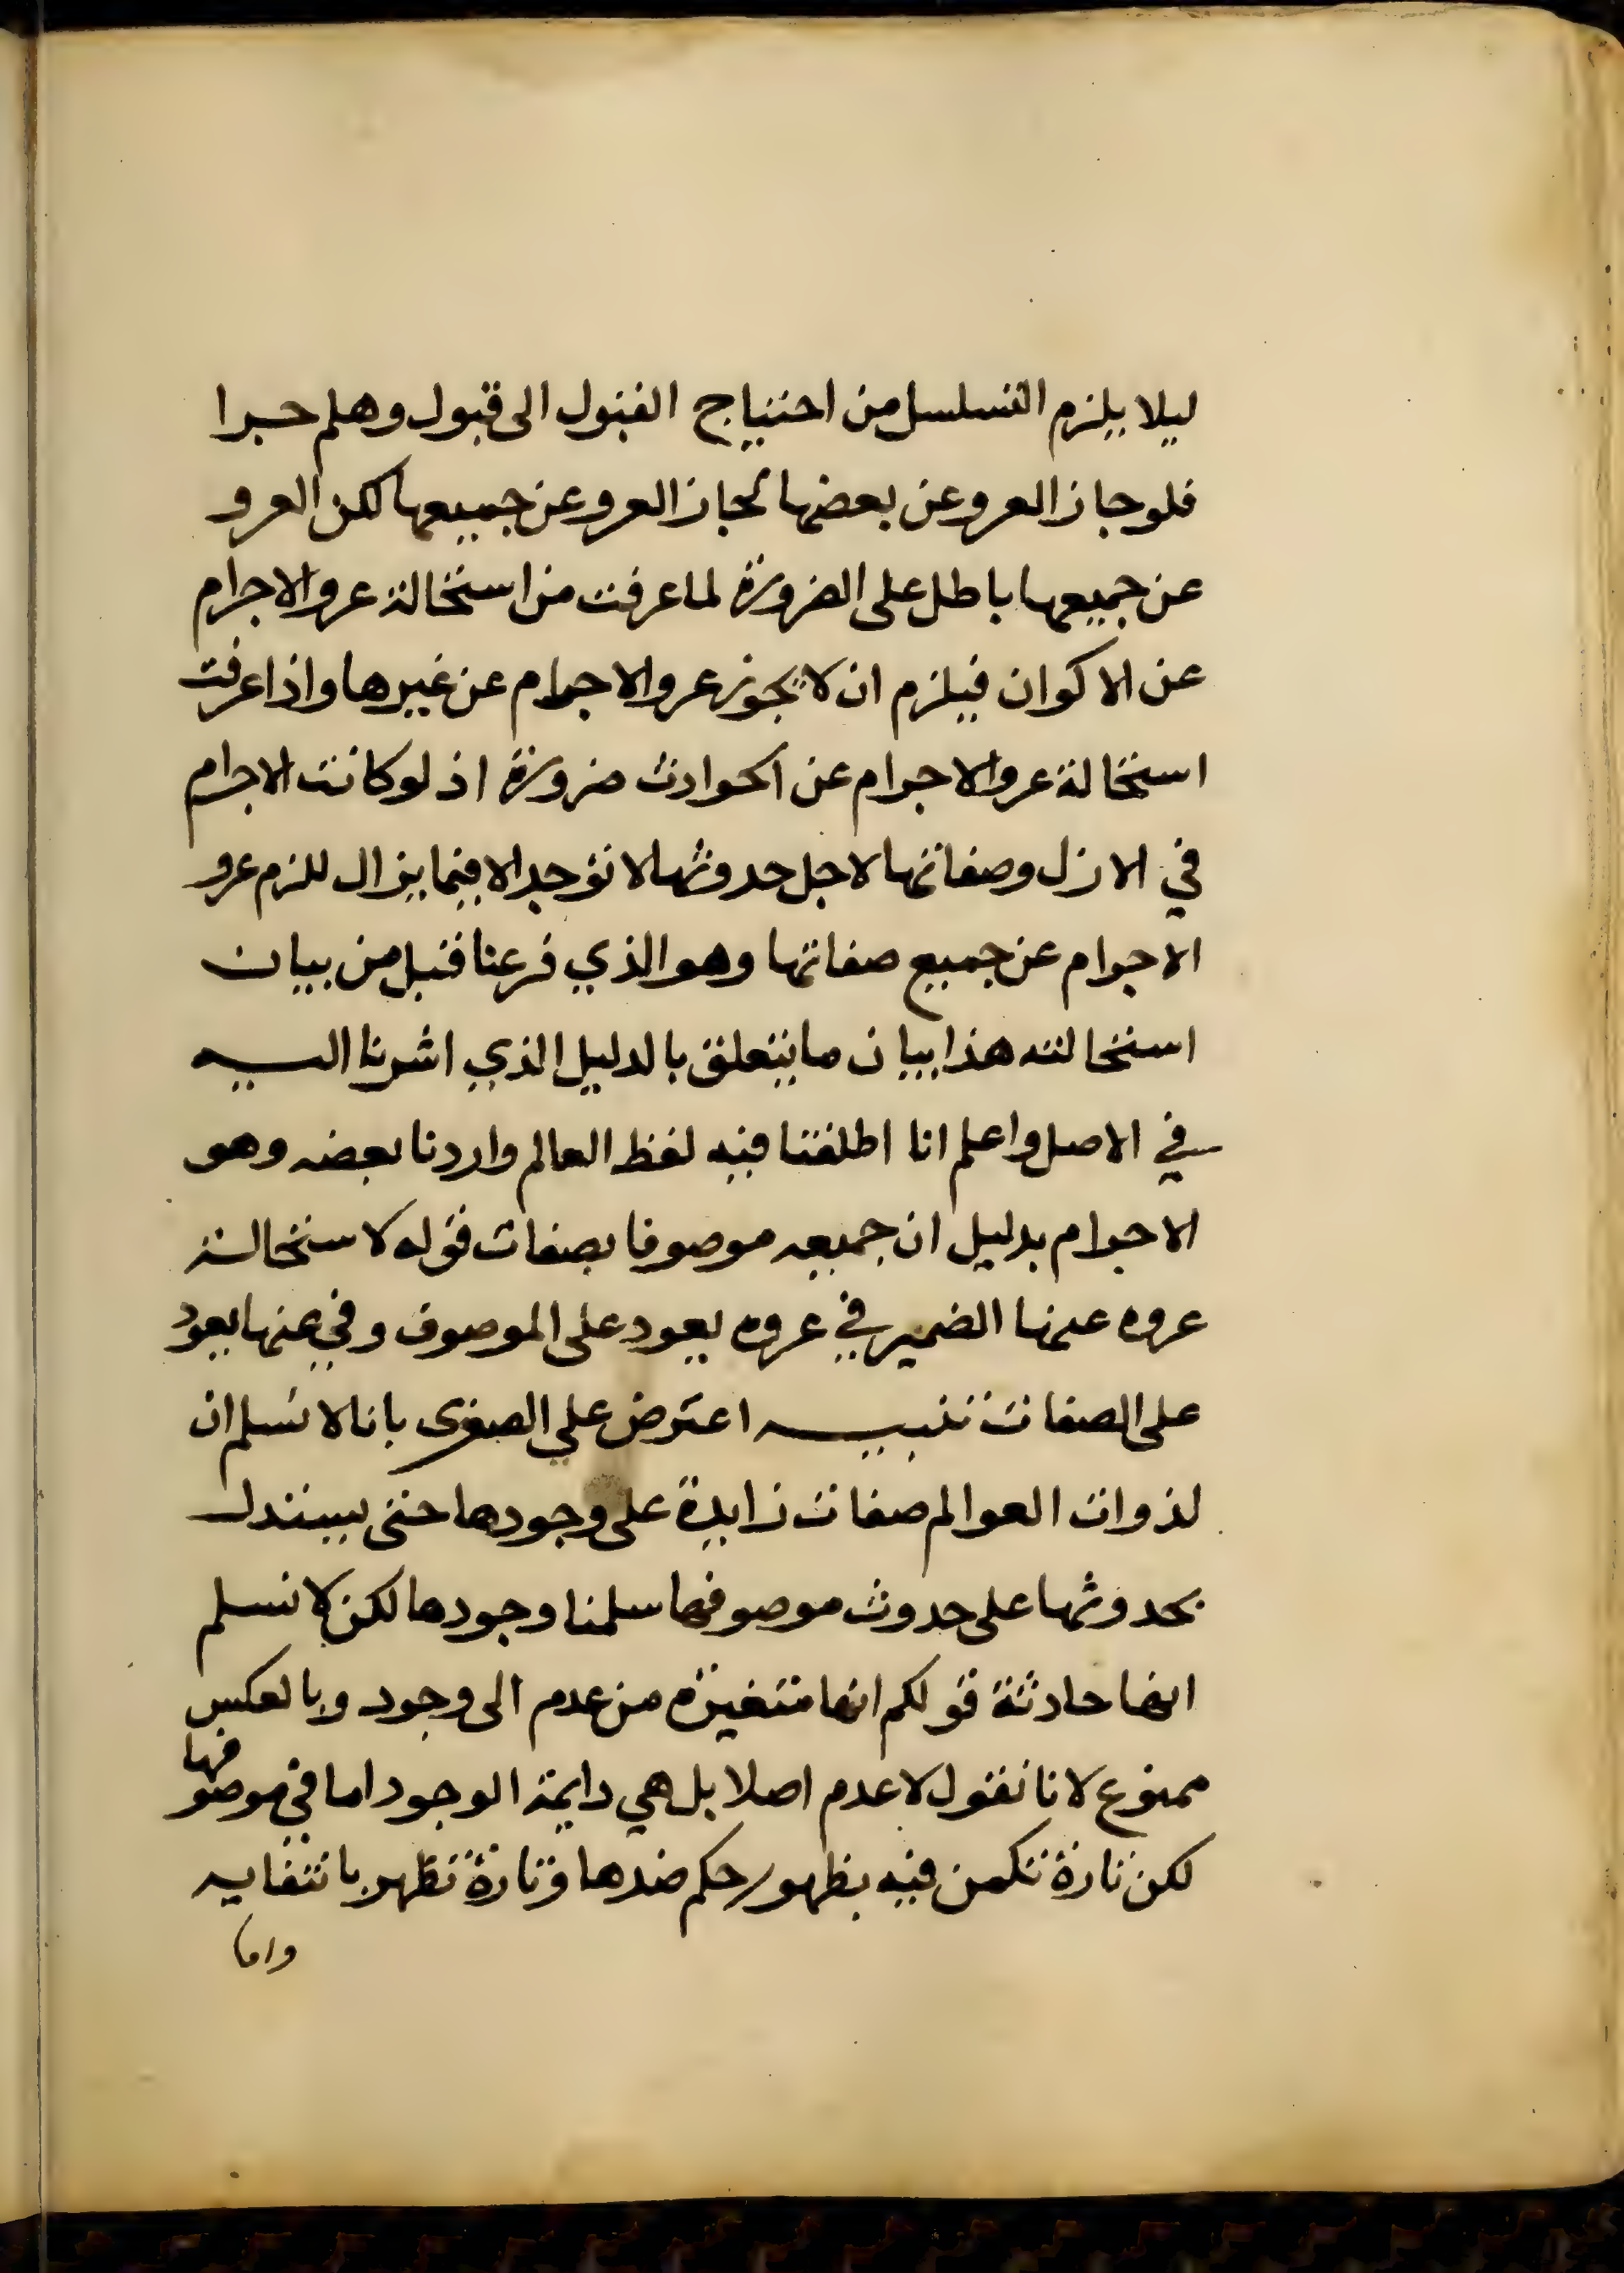 ليلا يلزم التسلسل من احتياج القبول الى قبول وهلم جرا
فلو جاز العرو عن بعضها لجاز العرو عن جميعها لكن العرو
عن جميعها باطل على الضرورة لما عرفت من استحالة عرو الاجرام
عن الاكوان فيلزم ان لا يجوز عرو الاجرام عن غيرها واذا عرفت
استحالة عرو الاجرام عن الحوادث ضرورة اذ لو كانت الاجرام
في الازل وصفاتها لاجل حدوثها لا توجد الا فيما يزال للزم عرو
الاجرام عن جميع صفاتها وهو الذي فرغنا قبل من بيان
استحالته هذا بيان ما يتعلق بالدليل الذي اشرنا اليه
في الاصل واعلم انا اطلقنا فيه لفظ العالم واردنا بعضه وهو
الاجرام بدليل ان جميعه موصوفا بصفات قوله لاستحالة
عروه عنها الضمير في عروه يعود على الموصوف وفي عنها يعود
على الصفات تنبيه اعترض علي الصغرى بانا لا نسلم ان
لذوات العوالم صفات زايدة على وجودها حتى يستدل
بحدوثها على حدوث موصوفها سلمنا وجودها لكن لا نسلم
انها حادثة قولكم انها متغيرة من عدم الى وجود وبالعكس
ممنوع لانا نقول لا عدم اصلا بل هي دايمة الوجود اما في موصوفها
لكن تارة تكمن فيه بظهور حكم ضدها وتارة تظهر بانتفايه
واما